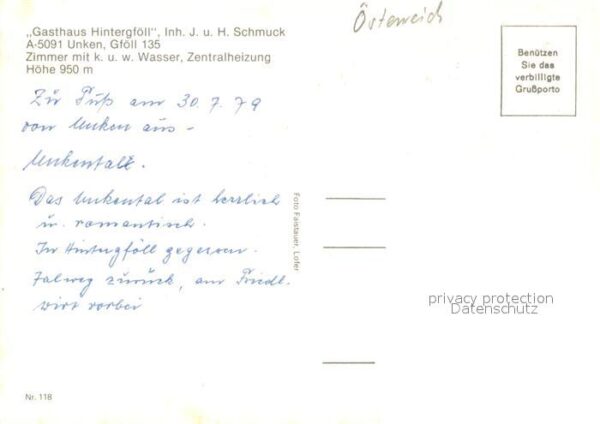 Österreich
„Gasthaus Hintergföll", Inh. J. u. H. Schmuck
A-5091 Unken, Gföll 135
Zimmer mit k. u. w. Wasser, Zentralheizung
Höhe 950 m
Benützen
Sie das
verbilligte
Grußporto
Zu Fuß am 30.7.79
von Unken aus -
Unkental.
Das Unkental ist herrlich
u. romantisch.
In Hintergföll gegessen.
Talweg zurück, am Friedl.
wirt vorbei
Foto Faistauer, Lofer
privacy protection
Datenschutz
Nr. 118